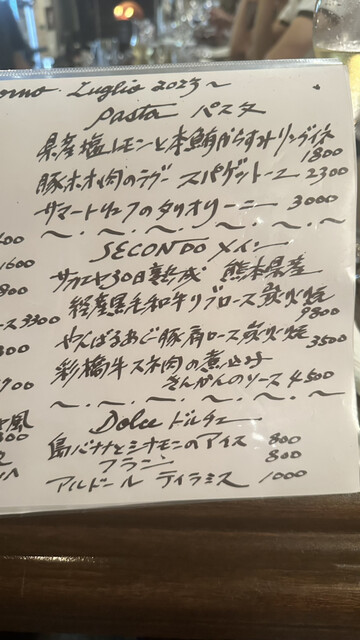 orno. Luglio 2025~
Pasta パスタ
県産塩レモンと本鮪からすみ リングイネ
1800
豚ホホ肉のラグー スパゲットーニ 2300
サマートリュフのタリオリーニ 3000
SECONDO メイン
サカエヤ30日熟成 熊本県産
経産黒毛和牛リブロース炭火焼
9800
やんばるあぐー豚肩ロース炭火焼
3500
彩橋牛スネ肉の煮込み
きんかんのソース 4500
Dolce ドルチェ
島バナナとシナモンのアイス 800
フラン 800
アルドール ティラミス 1000
600
1600
800
ース 3300
300
900
風
300